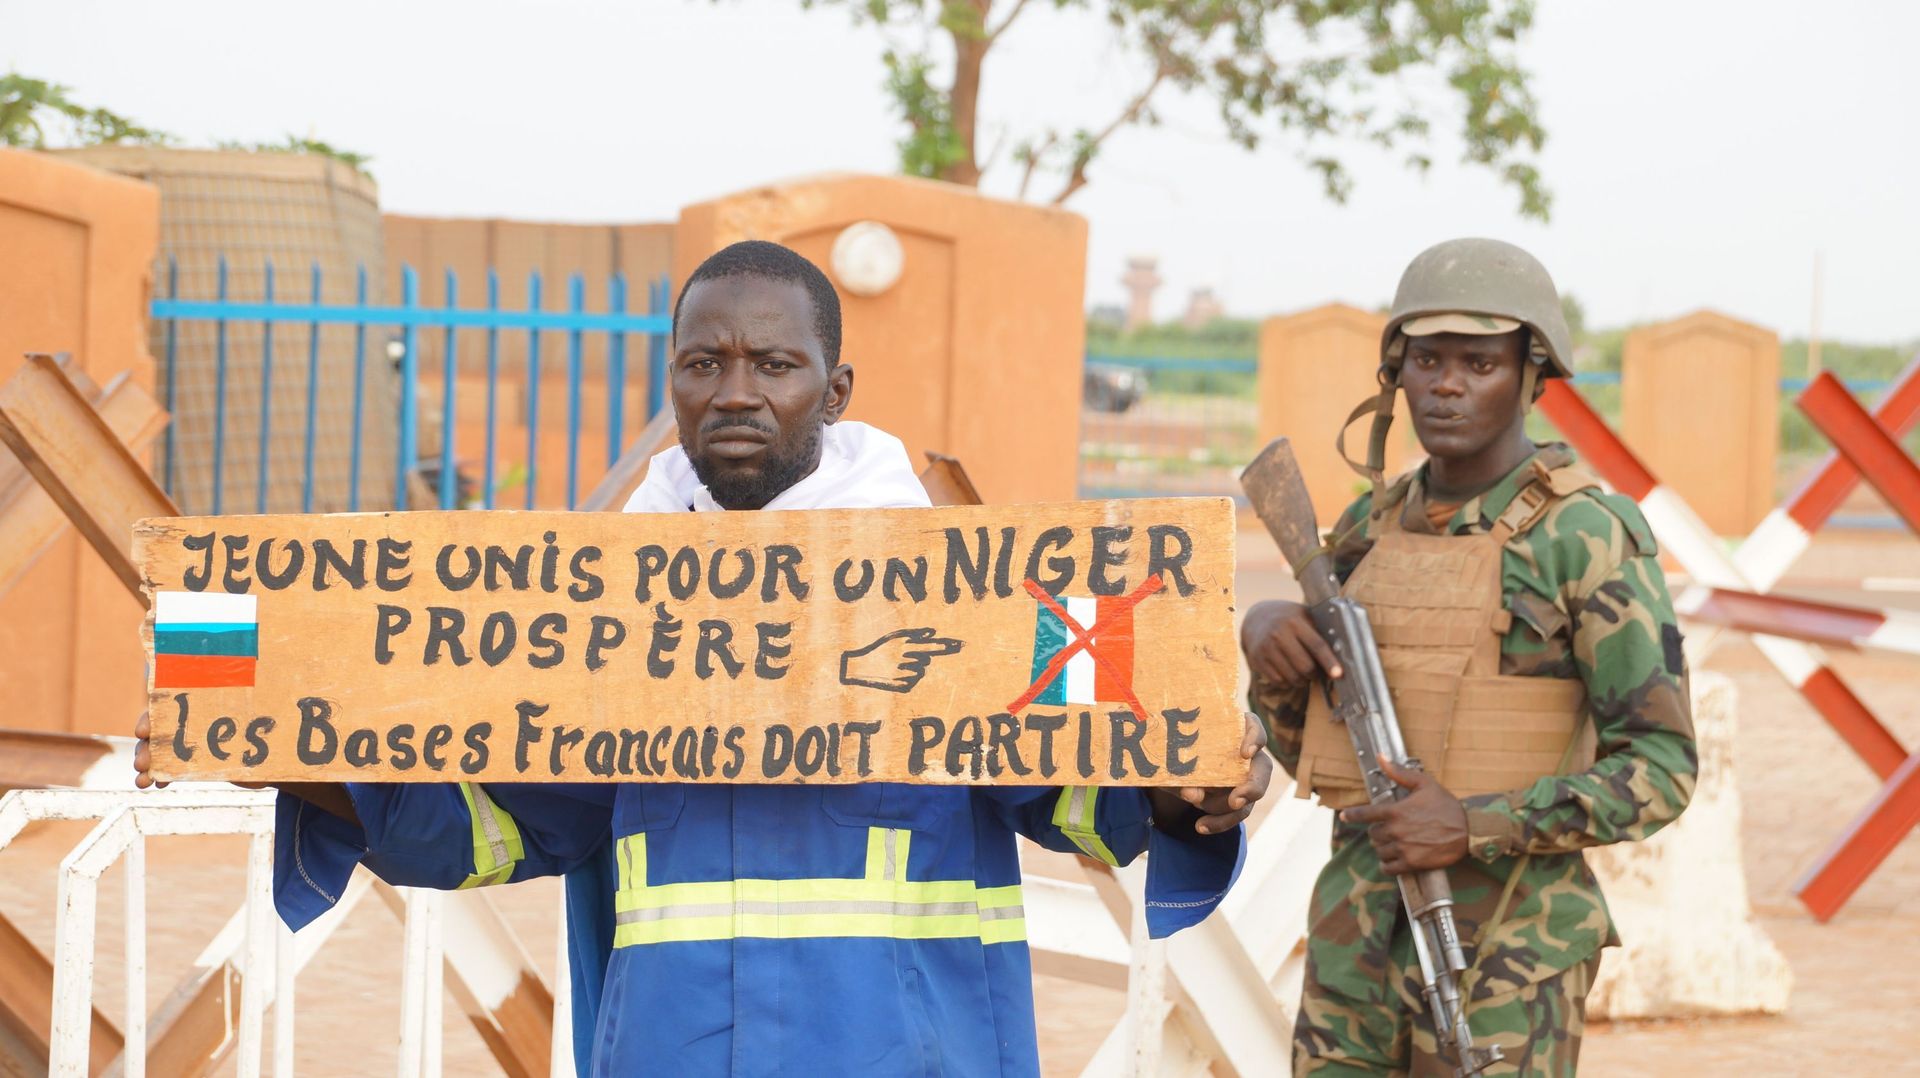 JEUNE UNiS POUR UN NIGER
PROSPÈRE
les Bases Francais DOIT PARTIRE